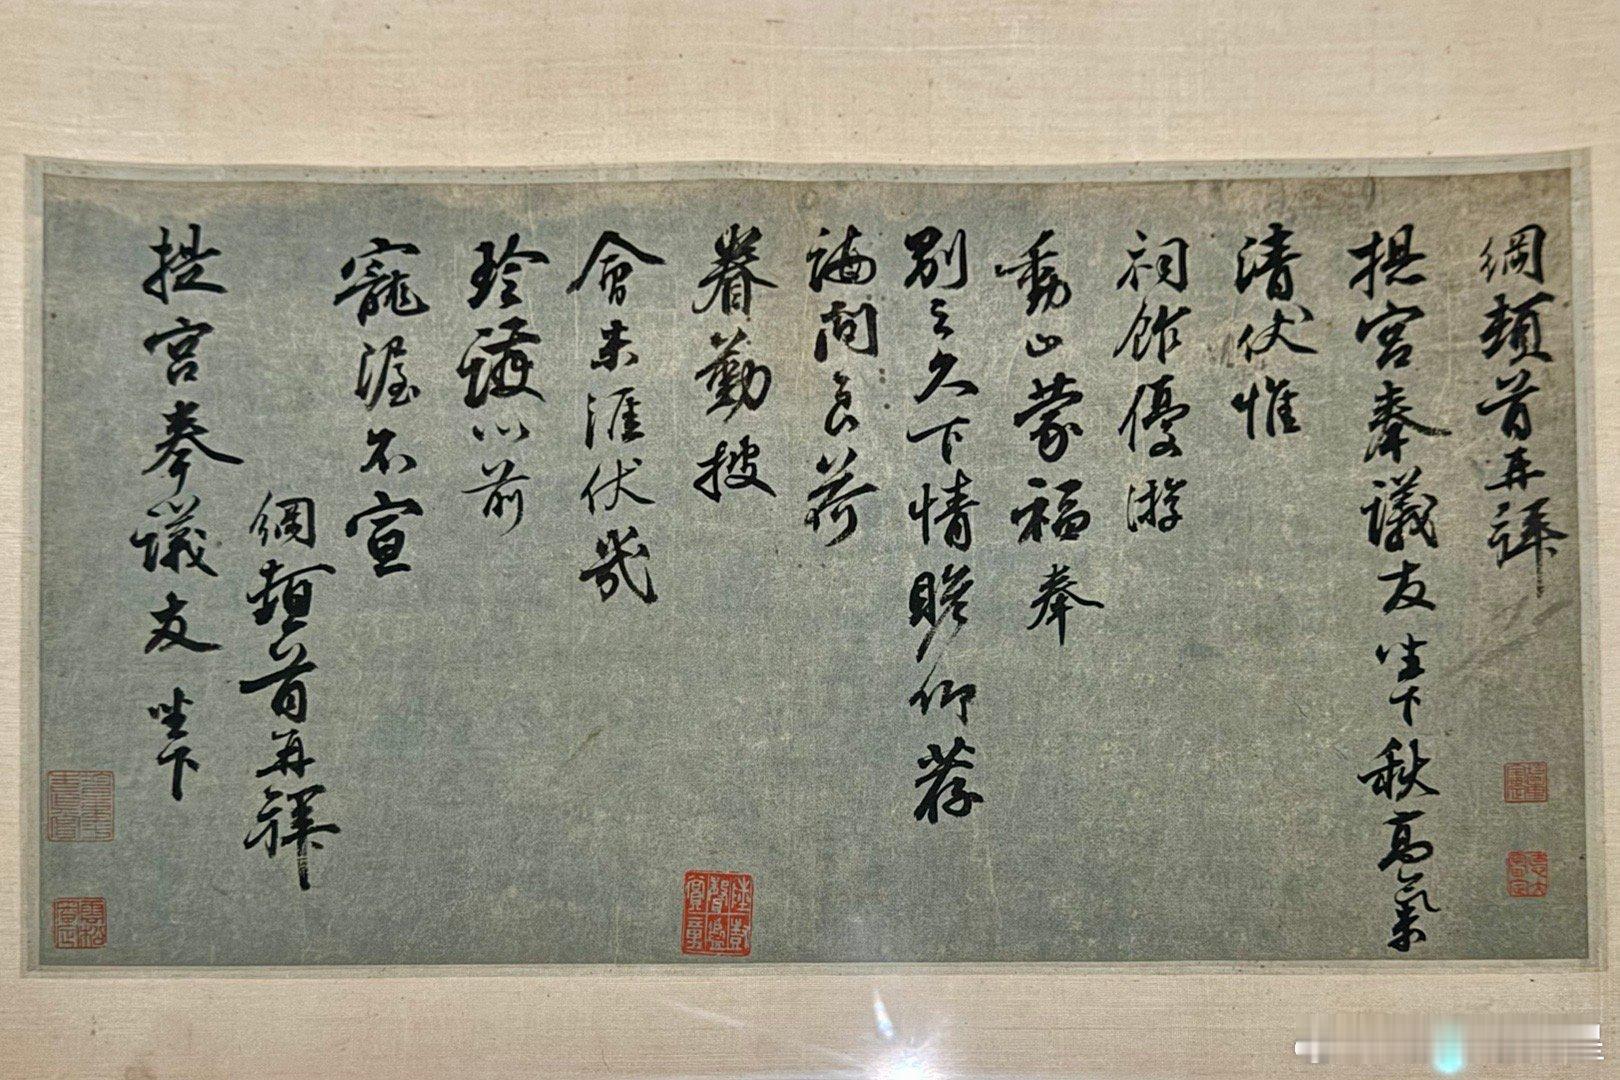 綱頓首再拜
提宮奉議友坐下秋高氣
清伏惟
祠館優游
動止蒙福奉
別之久下情瞻仰荐
誨問良荷
眷勤披
會未涯伏幾
珍護以前
寵渥不宣
綱頓首再拜
提宮奉議友坐下